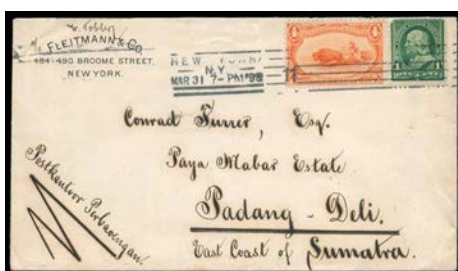 FLEITMANN & Co.
484-490 BROOME STREET,
NEW YORK.
NEW YORK
N.Y.
MAR 31 7-PM '99
4
1
Conrad Furrer, Esq.
Paya Mabar Estate
Padang - Deli.
East Coast of Sumatra.
Postkantoor Perbaoengan.